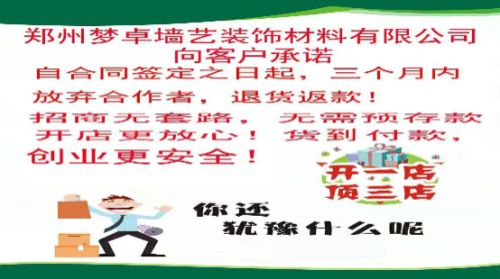 郑州梦卓墙艺装饰材料有限公司
向客户承诺
自合同签定之日起，三个月内
放弃合作者，退货返款！
招商无套路，无需预存款
开店更放心！货到付款，
创业更安全！
开一店
顶三店
你还
犹豫什么呢